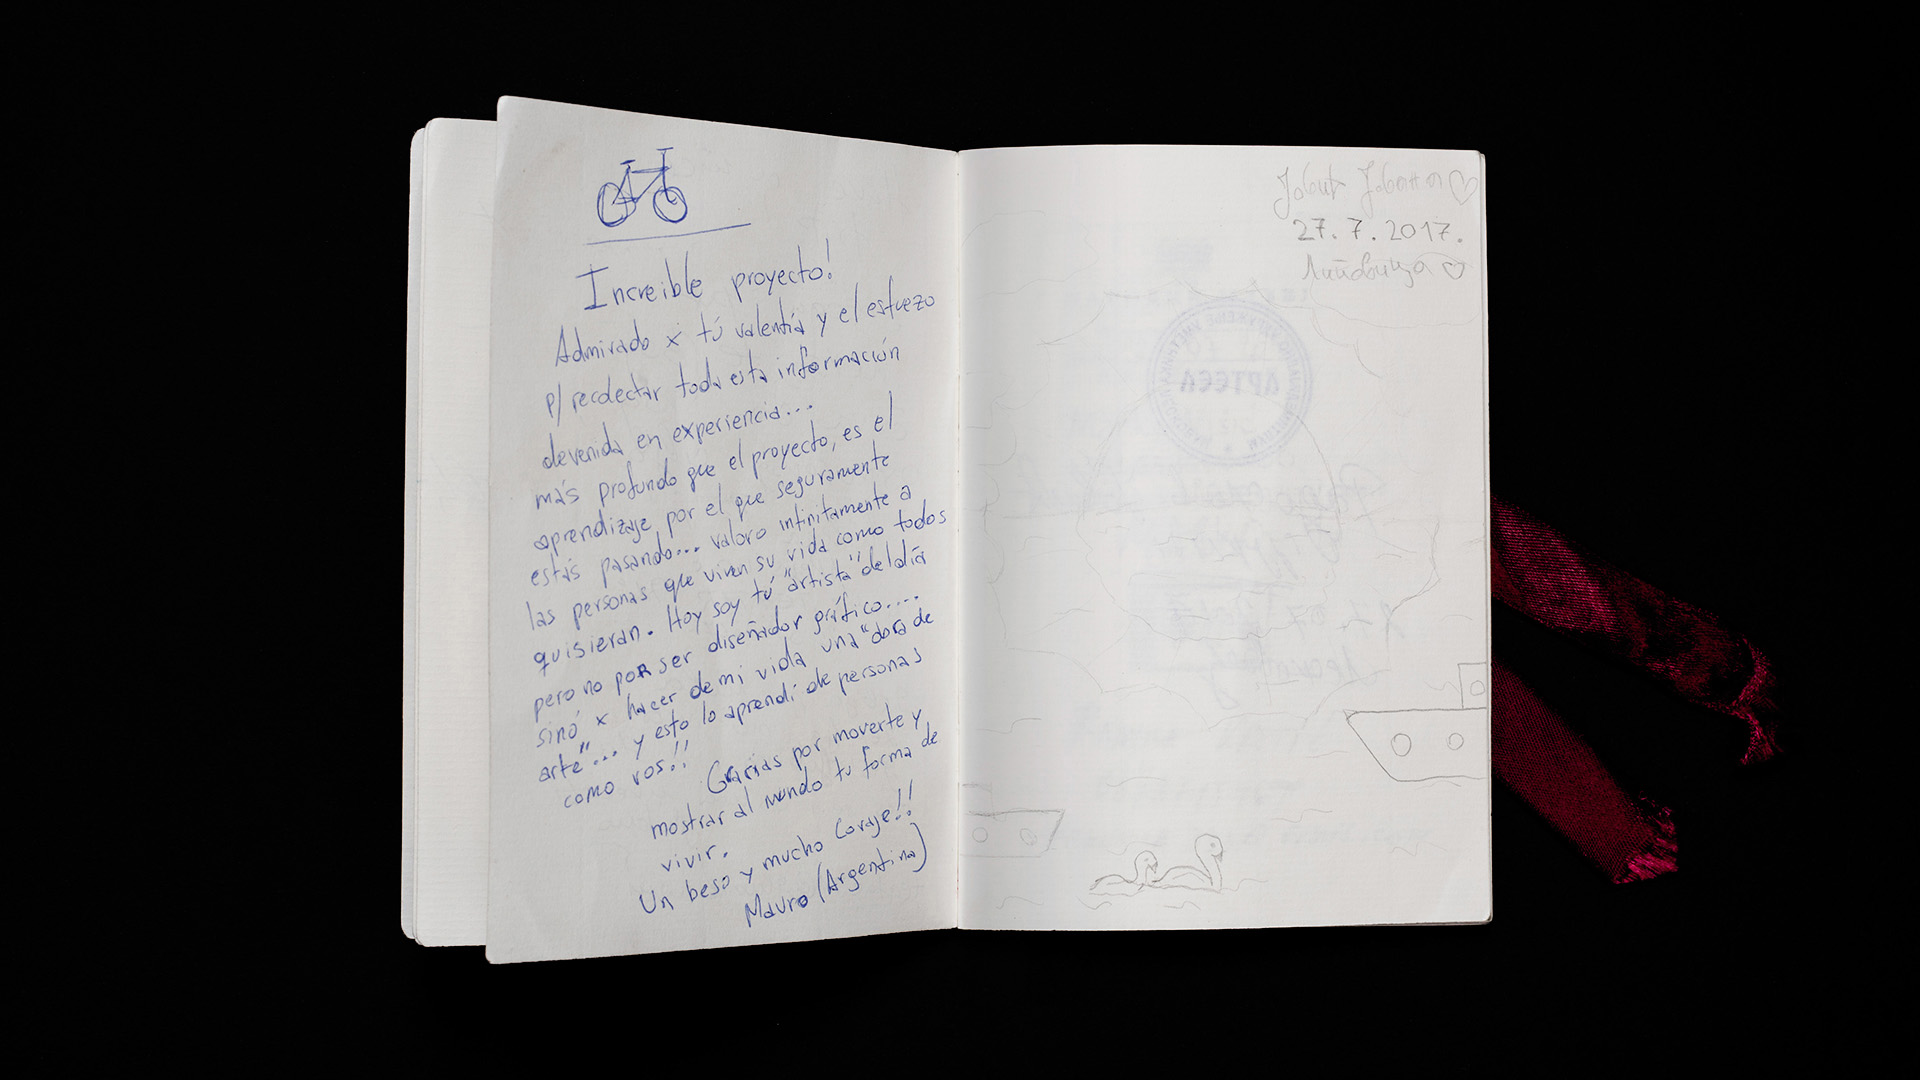 Increible proyecto!
Admirado x tú valentía y el esfuezo
p/ recolectar toda esta información
devenida en experiencia...
más profundo que el proyecto, es el
aprendizaje por el que seguramente
estás pasando... valoro infinitamente a
las personas que viven su vida como todos
quisieran. Hoy soy tú "artista" del día
pero no por ser diseñador gráfico....
sinó x hacer de mi vida una "obra de
arte"... y esto lo aprendí de personas
como vos!!
Gracias por moverte y
mostrar al mundo tu forma de
vivir.
Un beso y mucho Coraje!!
Mauro (Argentina)
Јовић Јована
27. 7. 2017.
Липовица
АРТЕСА